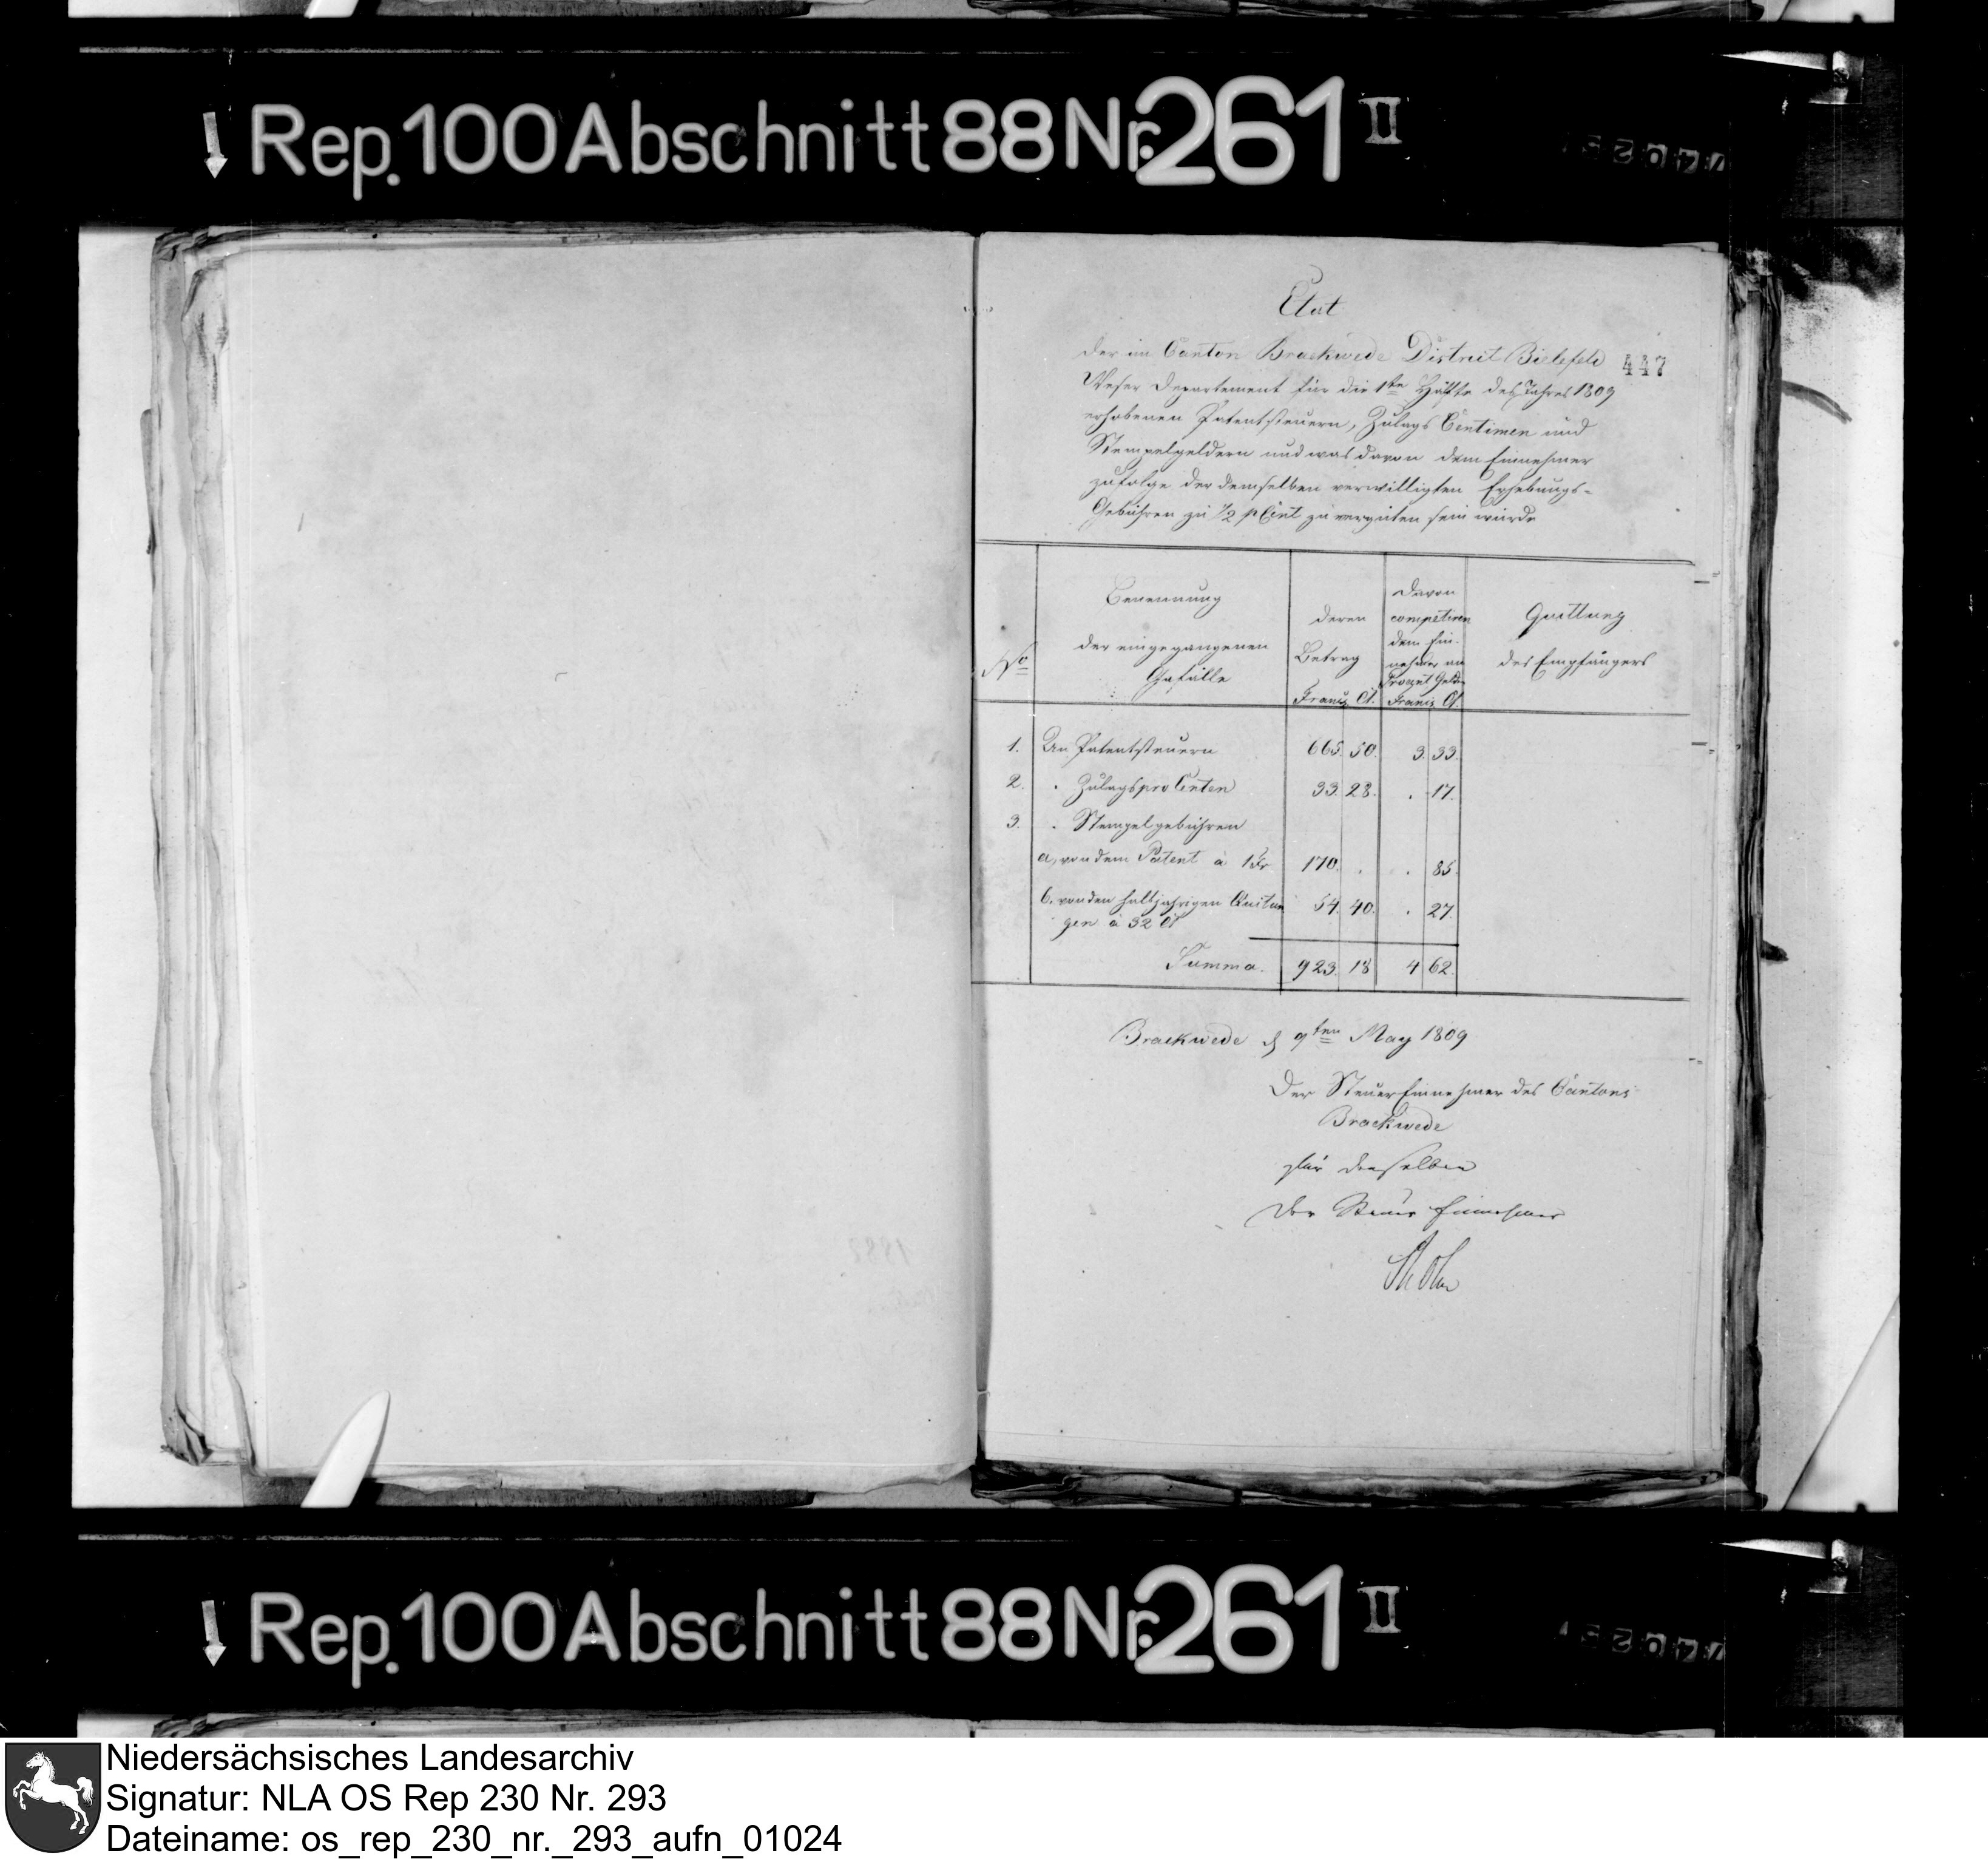 Rep. 100 Abschnitt 88 Nr. 261 II
Etat
447
der im Canton Brackwede District Bielefeld
Weser Departement für die 1te Hälfte des Jahres 1809
erhobenen Patentsteuern, Zulags Centimen und
Stempelgeldern und was davon dem Einnehmer
zufolge der demselben verwilligten Erhebungs-
Gebühren zu 1/2 pCent zu vergüten sein würde
No | Benennung der eingegangenen Gefälle | deren Betrag Francs Ct. | davon competiren dem Einnehmer an Procent Gelder Francs Ct. | Quittung des Empfängers
1. An Patentsteuern 665. 50. 3. 33.
2. . Zulags pro Centen 33. 28. . 17.
3. . Stempelgebühren
a, von dem Patent à 1 Fr 170. . . 85.
b. von den halbjährigen Quitun
gen à 32 Ct 54. 40. . 27.
Summa. 923. 18 4 62.
Brackwede d 9ten May 1809
Der Steuer Einnehmer des Cantons
Brackwede
für denselben
Der Steuer Einnehmer
Rep. 100 Abschnitt 88 Nr. 261 II
Niedersächsisches Landesarchiv
Signatur: NLA OS Rep 230 Nr. 293
Dateiname: os_rep_230_nr._293_aufn_01024